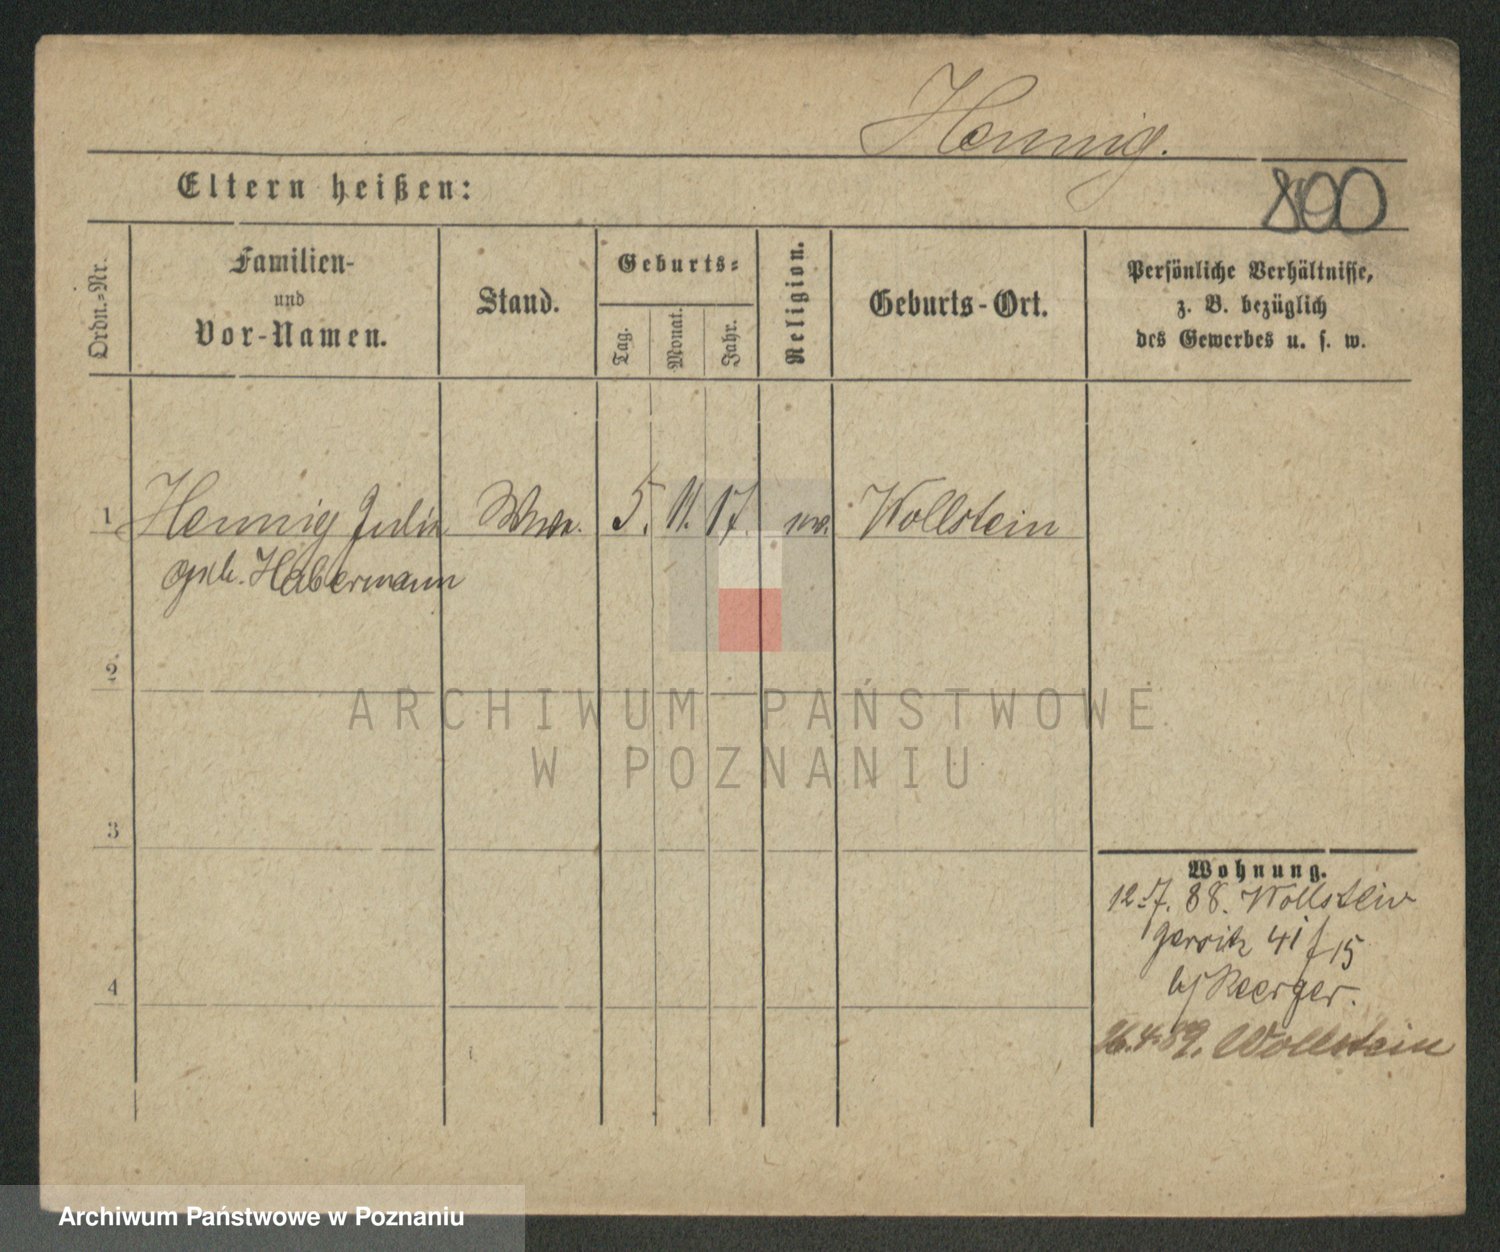 Hennig.
Eltern heißen:
800
Ordn.-Nr.
Familien-
und
Vor-Namen.
Stand.
Geburts-
Tag.
Monat.
Jahr.
Religion.
Geburts-Ort.
Persönliche Verhältnisse,
z. B. bezüglich
des Gewerbes u. s. w.
1 Hennig Julie Wwe. 5. 11. 17. ev. Wollstein
geb. Habermann
2
ARCHIWUM PAŃSTWOWE
W POZNANIU
3
Wohnung.
12.7. 88. Wollstein
Gersitz 41 f 15
4
26.4.89. Wollstein
Archiwum Państwowe w Poznaniu